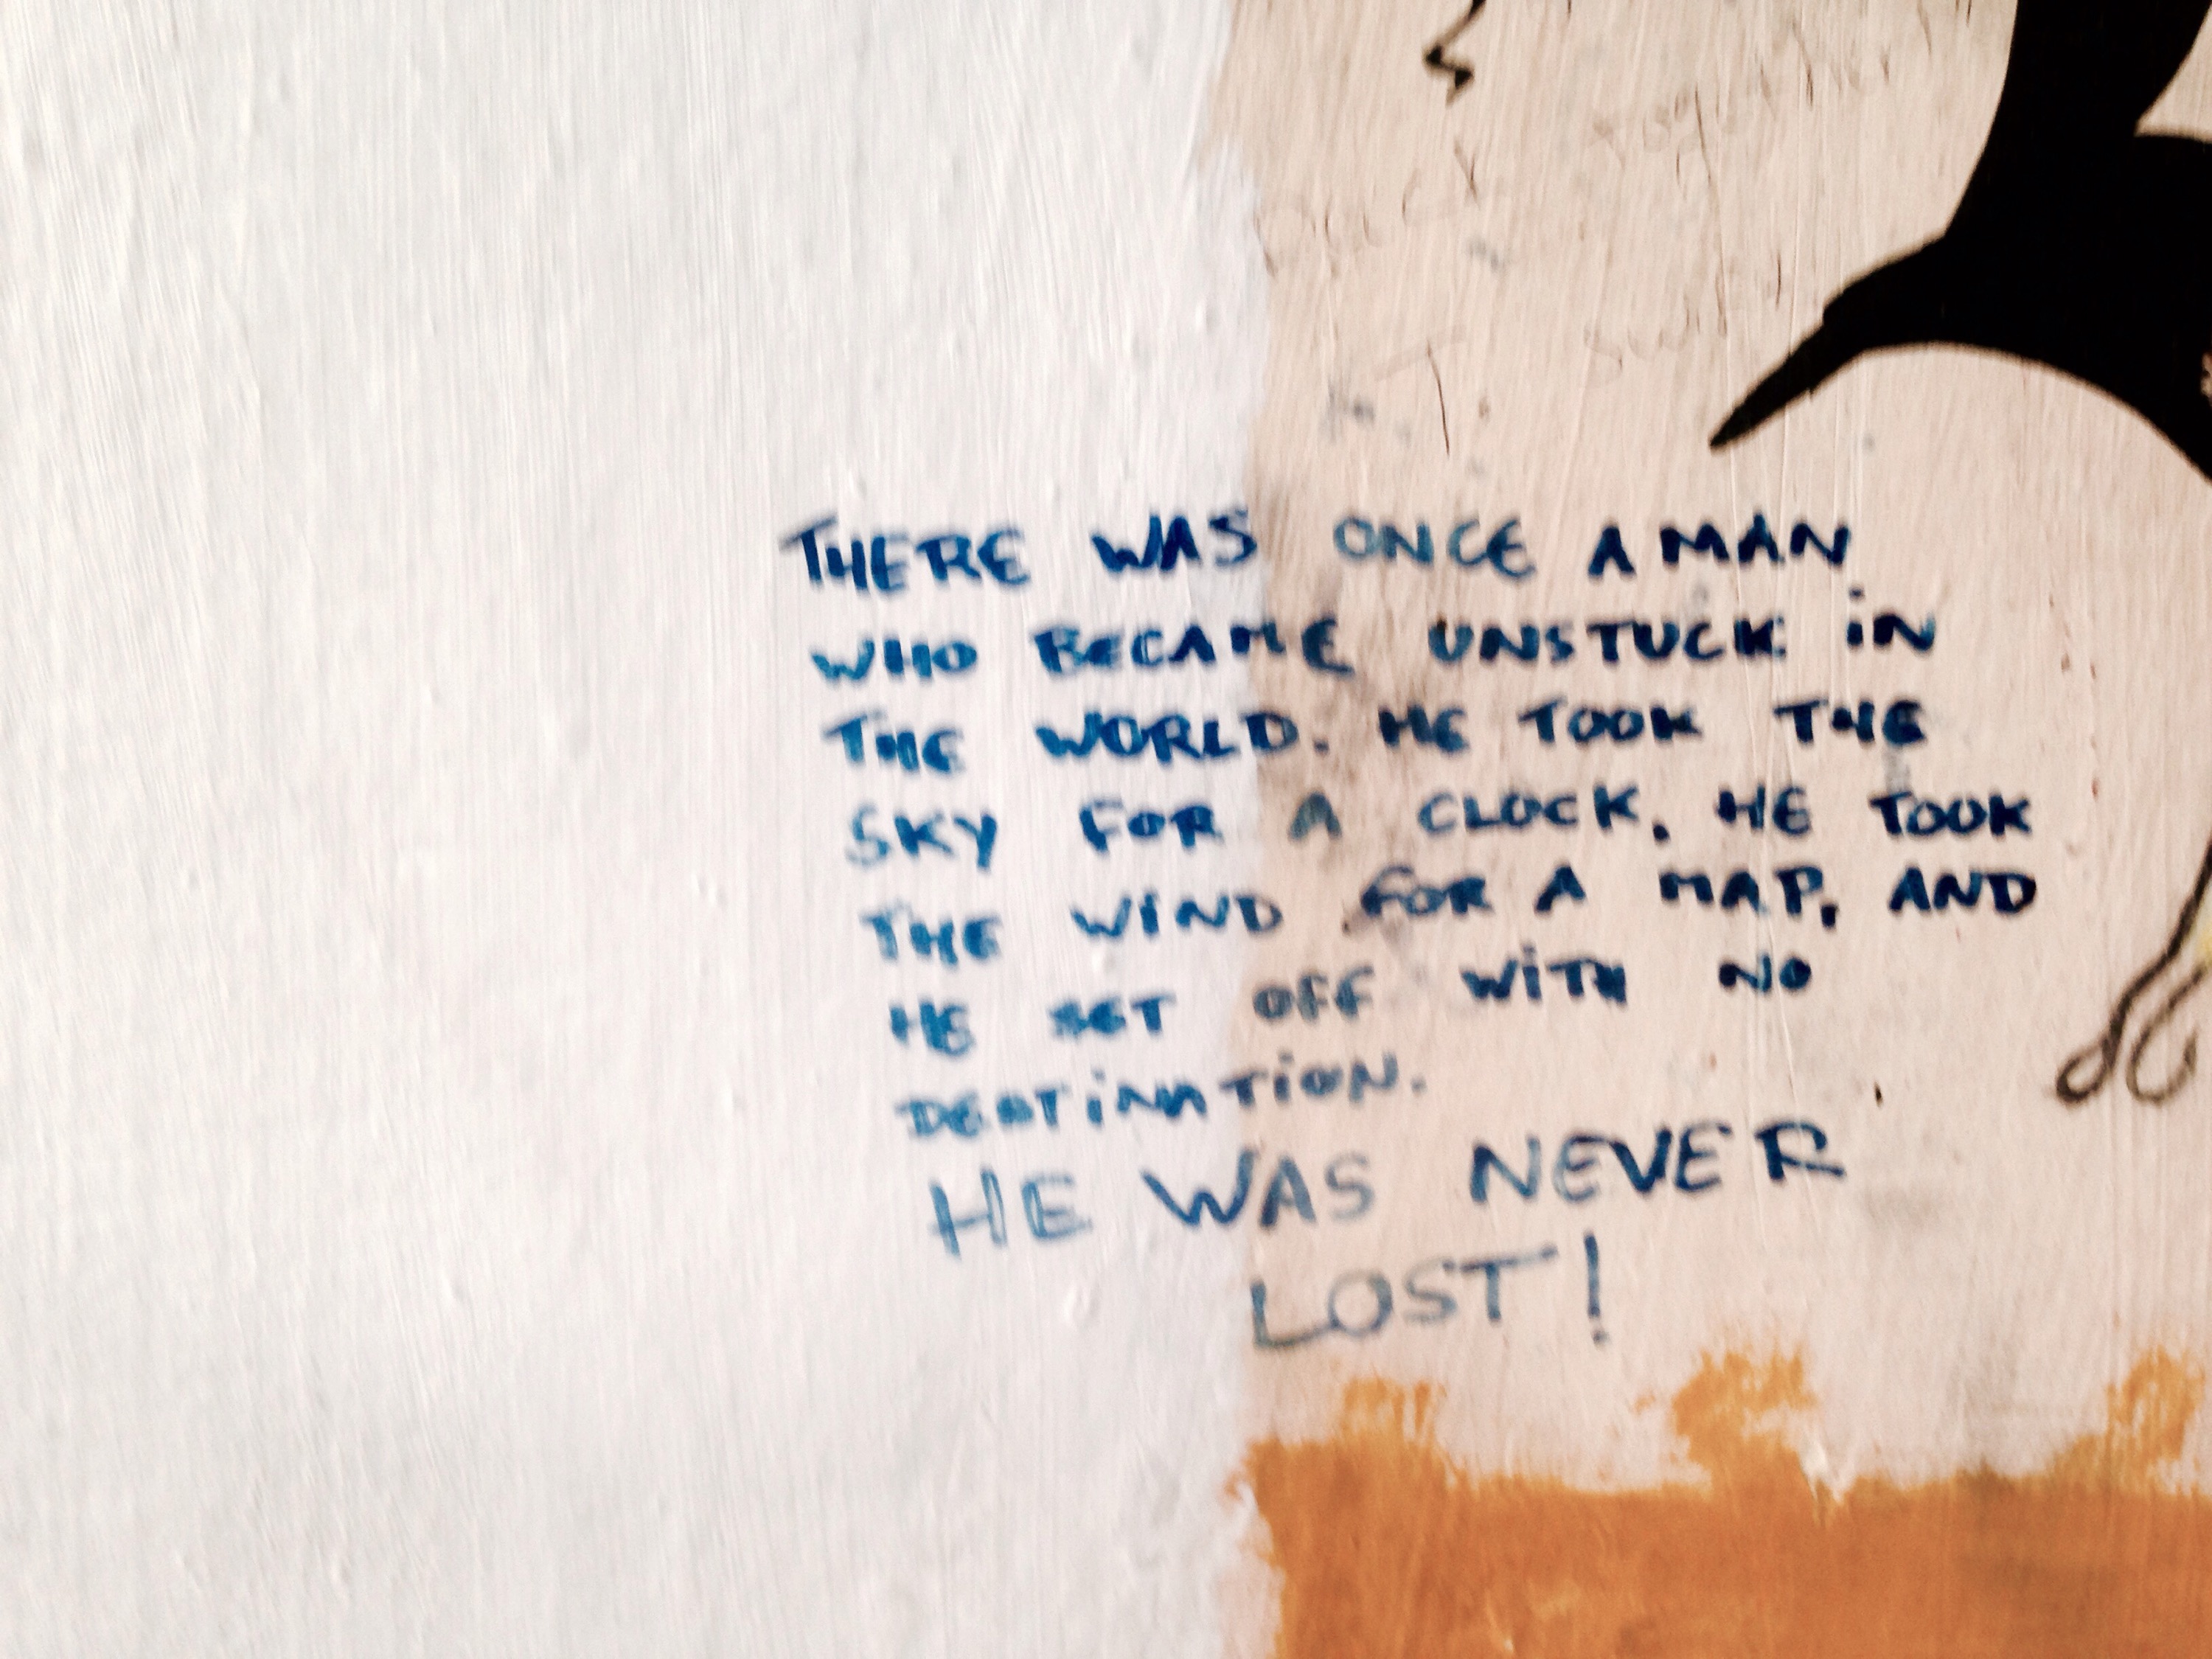 THERE WAS ONCE A MAN
WHO BECAME UNSTUCK iN
THE WORLD. HE TOOK THE
SKY FOR A CLOCK. HE TOOK
THE WiND FOR A MAP, AND
HE SET OFF WiTH NO
DESTiNATiON.
HE WAS NEVER
LOST!